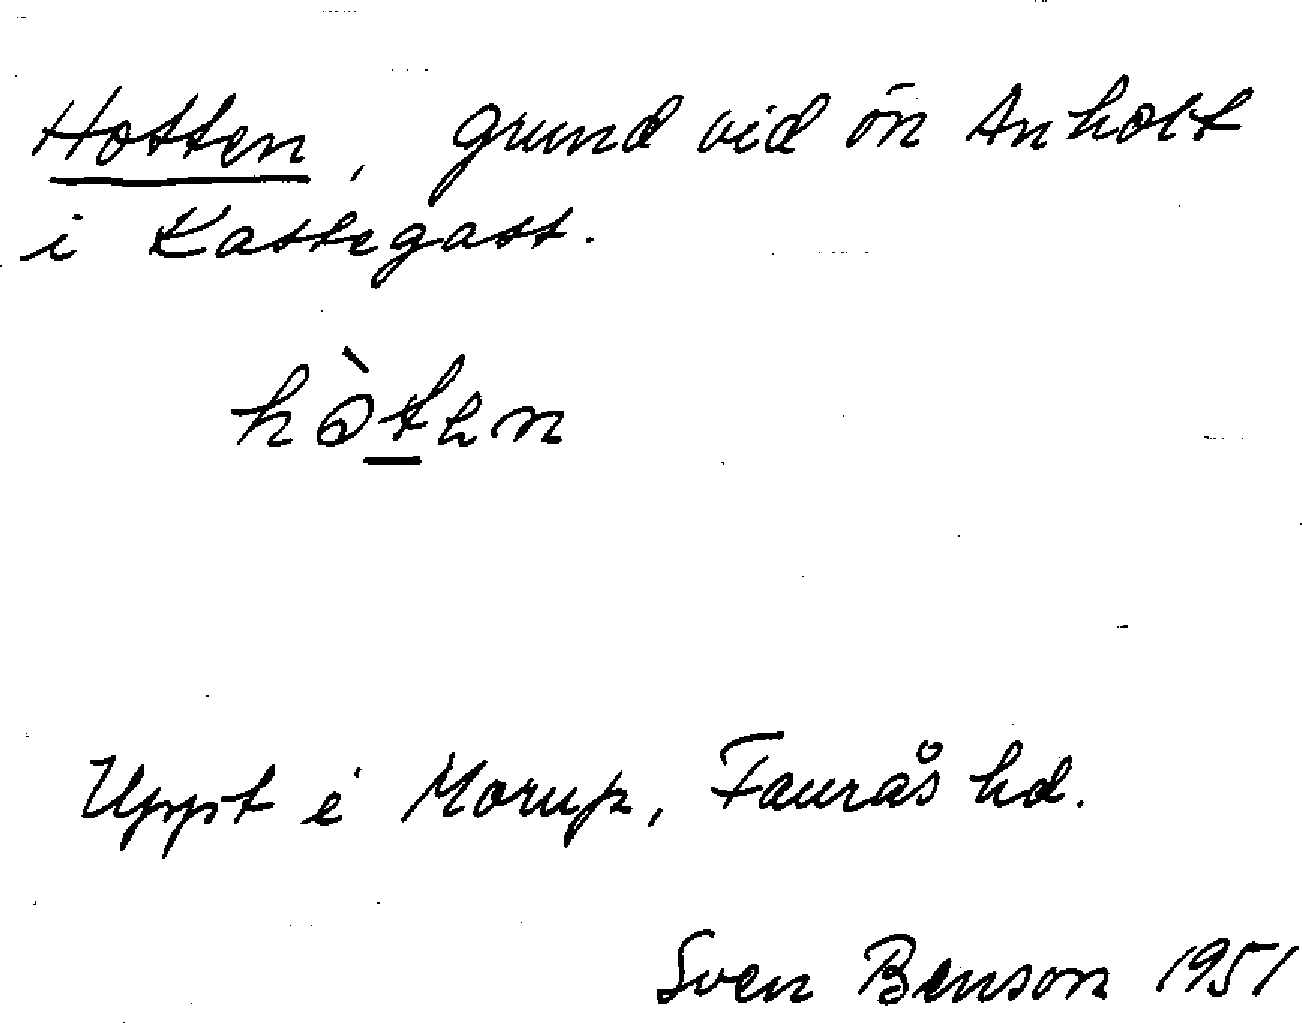 Hotten, grund vid ön Anholt
i Kattegatt.
hòten
Uppt i Morup, Faurås hd.
Sven Benson 1951